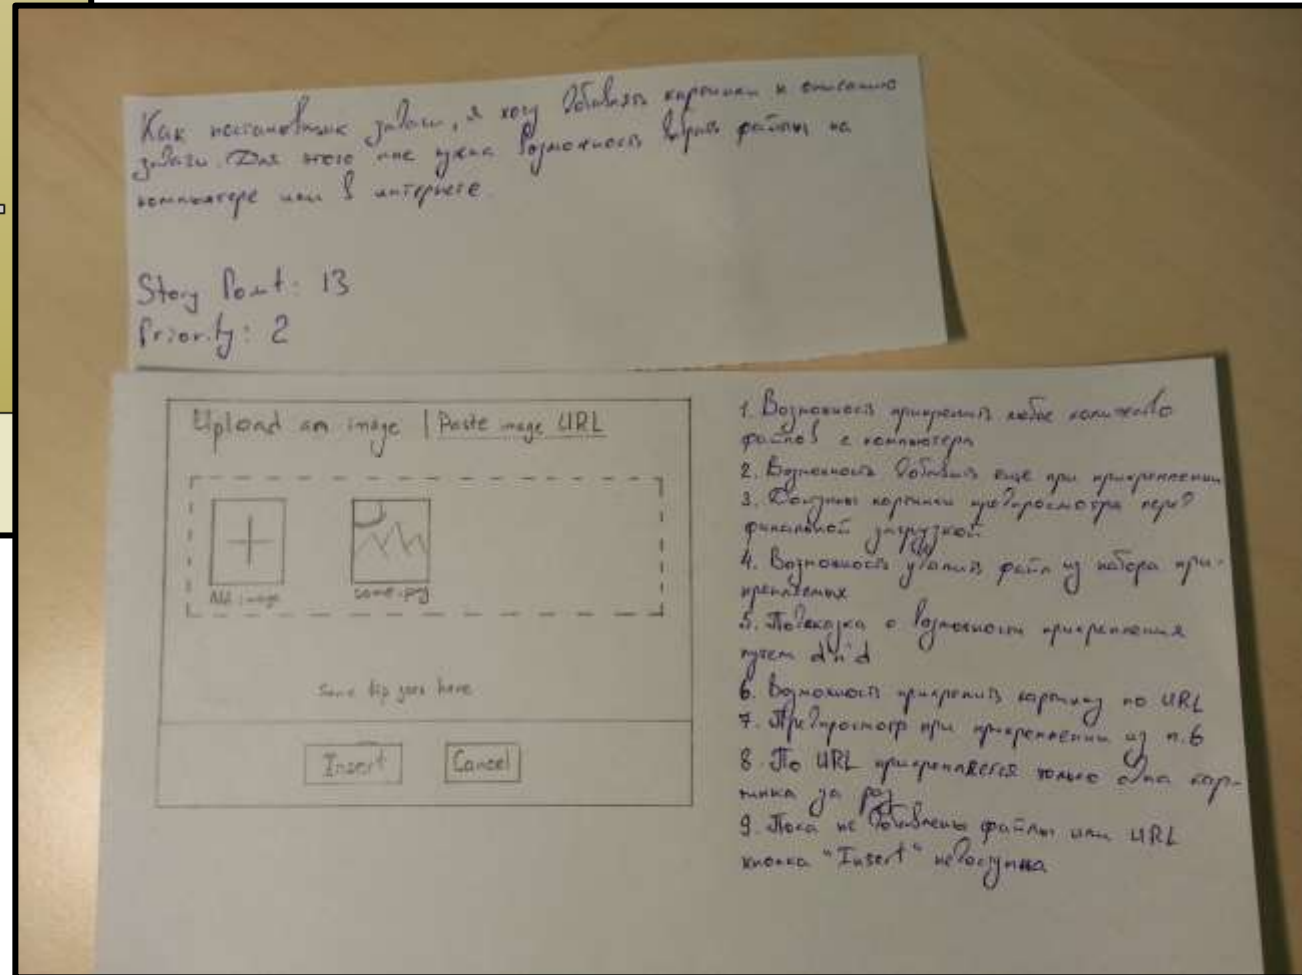 Как постановщик задачи, я хочу добавлять картинки к описанию
задачи. Для этого мне нужна возможность выбрать файлы на
компьютере или в интернете.
Story Point: 13
Priority: 2
Upload an image | Paste image URL
Add image
some.png
Some tip goes here
Insert
Cancel
1. Возможность прикрепить любое количество
файлов с компьютера
2. Возможность добавить еще при прикреплении
3. Должны картинки предпросмотра перед
финальной загрузкой
4. Возможность удалить файл из набора при-
крепляемых
5. Подсказка о возможности прикрепления
путем d'n'd
6. Возможность прикрепить картинку по URL
7. Предпросмотр при прикреплении из п.6
8. По URL прикрепляется только одна кар-
тинка за раз
9. Пока не добавлены файлы или URL
кнопка "Insert" недоступна